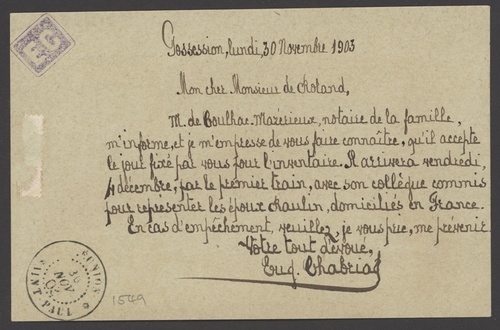 Possession, lundi, 30 Novembre 1903
Mon cher Monsieur de
M. de Boulhac-Mazérieux, notaire de la famille,
m'informe, et je m'empresse de vous faire connaître, qu'il accepte
le jour fixé par vous pour l'inventaire. Il arrivera vendredi,
4 décembre, par le premier train, avec son collègue commis
pour représenter les époux Chaulin, domiciliés en France.
En cas d'empêchement, veuillez, je vous prie, me prévenir
Votre tout dévoué,
Eug. Chabrias
REUNION
SAINT PAUL
30
NOV
03
1549